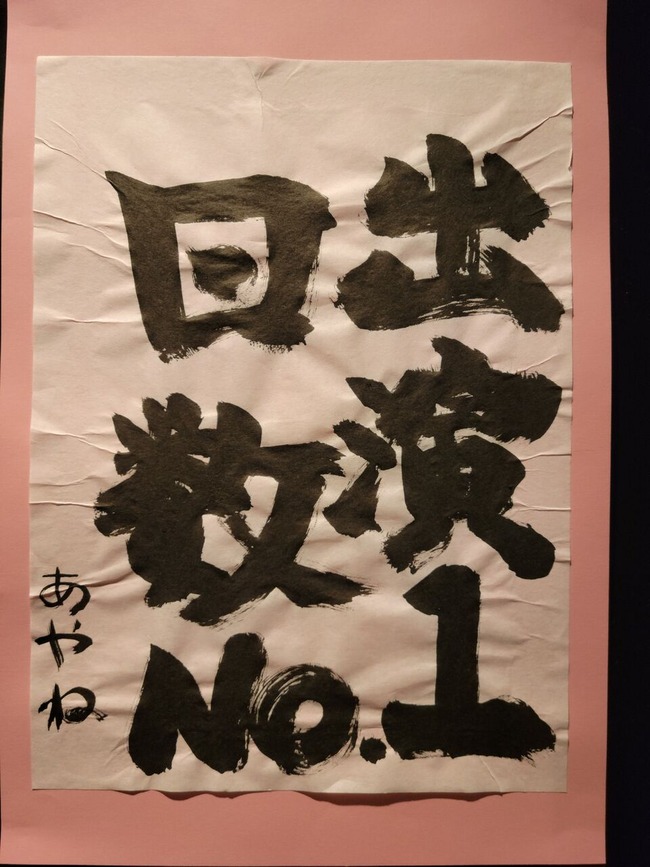 出演
回数
No.1
あやね